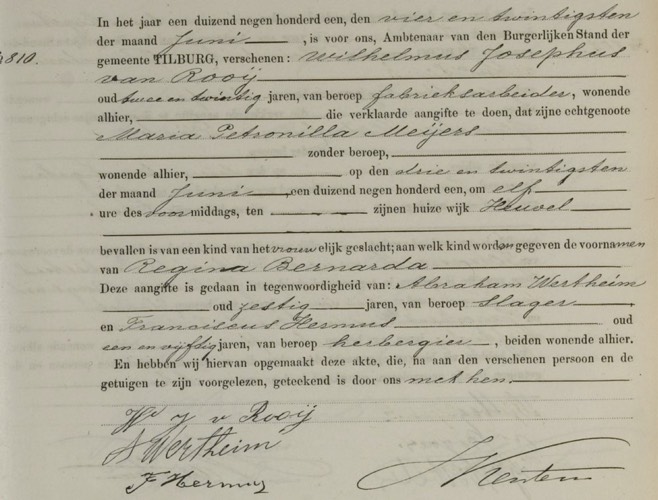 In het jaar een duizend negen honderd een, den vier en twintigsten
der maand Juni, is voor ons, Ambtenaar van den Burgerlijken Stand der
810.
gemeente TILBURG, verschenen: Wilhelmus Josephus
van Rooij
oud twee en twintig jaren, van beroep fabrieksarbeider, wonende
alhier, die verklaarde aangifte te doen, dat zijne echtgenoote
Maria Petronilla Meijers
zonder beroep,
wonende alhier, op den drie en twintigsten
der maand Juni, een duizend negen honderd een, om elf
ure des voormiddags, ten zijnen huize wijk Heuvel
bevallen is van een kind van het vrouwelijk geslacht; aan welk kind worden gegeven de voornamen
van Regina Bernarda
Deze aangifte is gedaan in tegenwoordigheid van: Abraham Wertheim
oud zestig jaren, van beroep Slager
en Franciscus Hermus oud
een en vijftig jaren, van beroep herbergier, beiden wonende alhier.
En hebben wij hiervan opgemaakt deze akte, die, na aan den verschenen persoon en de
getuigen te zijn voorgelezen, geteekend is door ons met hen.
W J v Rooij
A Wertheim
F Hermus